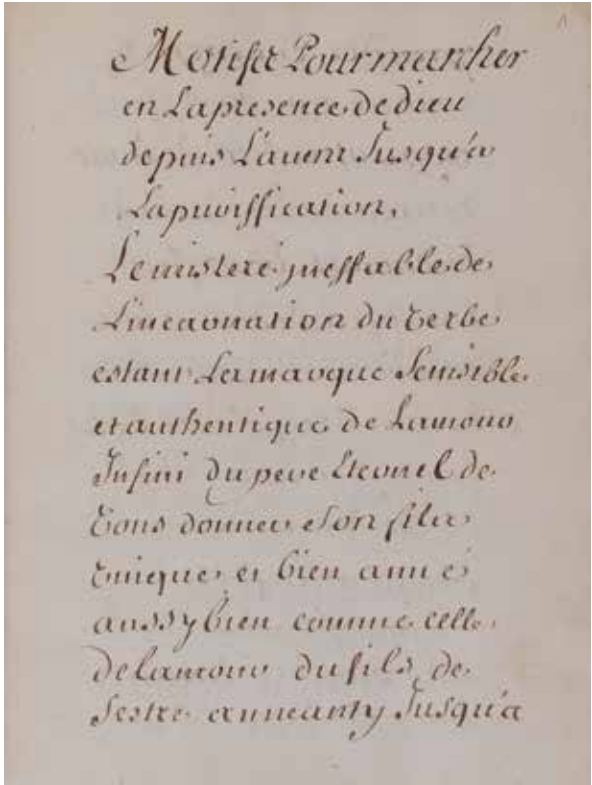 Motifs Pour marcher
en La presence de dieu
depuis L'avent Jusqu'a
La puriffication,
Le mistere ineffable de
L'incarnation du Verbe
estant La marque Sensible
et authentique de Lamour
Infini du pere Eternel de
Vous donner Son fils
Unique et bien aimé
aussy bien comme celle
de lamour du fils de
Sestre anneanty Jusqu'a